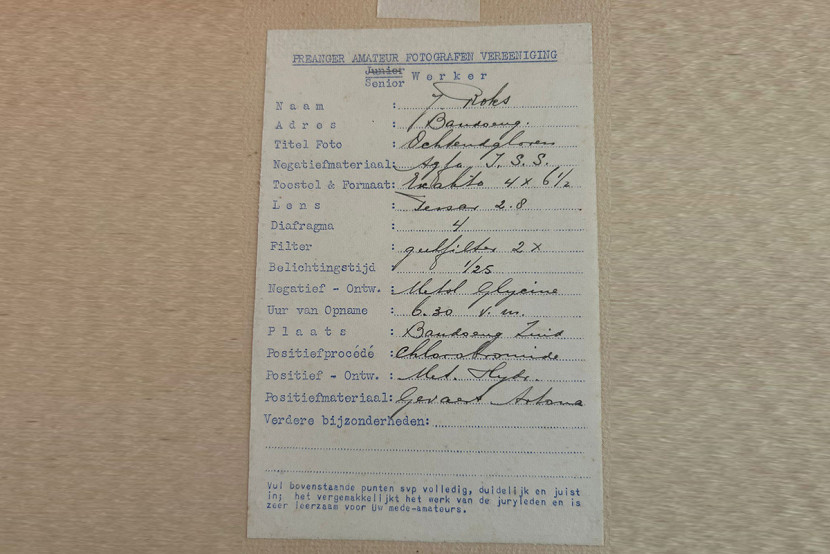 PREANGER AMATEUR FOTOGRAFEN VEREENIGING
Junior
Senior Werker
Naam : J Roks
Adres : Bandoeng.
Titel Foto : Ochtendgloren
Negatiefmateriaal: Agfa I.S.S.
Toestel & Formaat: Exakta 4 x 6½
Lens : Tessar 2.8
Diafragma : 4
Filter : geelfilter 2x
Belichtingstijd : 1/25
Negatief - Ontw. : Metol Glycine
Uur van Opname : 6.30 v.m.
Plaats : Bandoeng Zuid
Positiefprocédé : Chlorobromide
Positief - Ontw. : Met. Hydr.
Positiefmateriaal: Gevaert Artona
Verdere bijzonderheden:
Vul bovenstaande punten svp volledig, duidelijk en juist
in; het vergemakkelijkt het werk van de juryleden en is
zeer leerzaam voor Uw mede-amateurs.